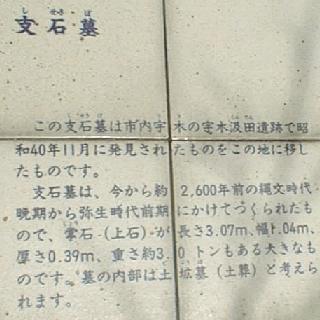 し せき ぼ
支石墓
この支石墓は市内宇木の宇木汲田遺跡で昭
和40年11月に発見されたものをこの地に移し
たものです。
支石墓は、今から約2,600年前の縄文時代
晩期から弥生時代前期にかけてつくられたも
ので、掌石(上石)が長さ3.07m、幅1.04m、
厚さ0.39m、重さ約3.0トンもある大きなも
のです。墓の内部は土壙墓(土葬)と考えら
れます。